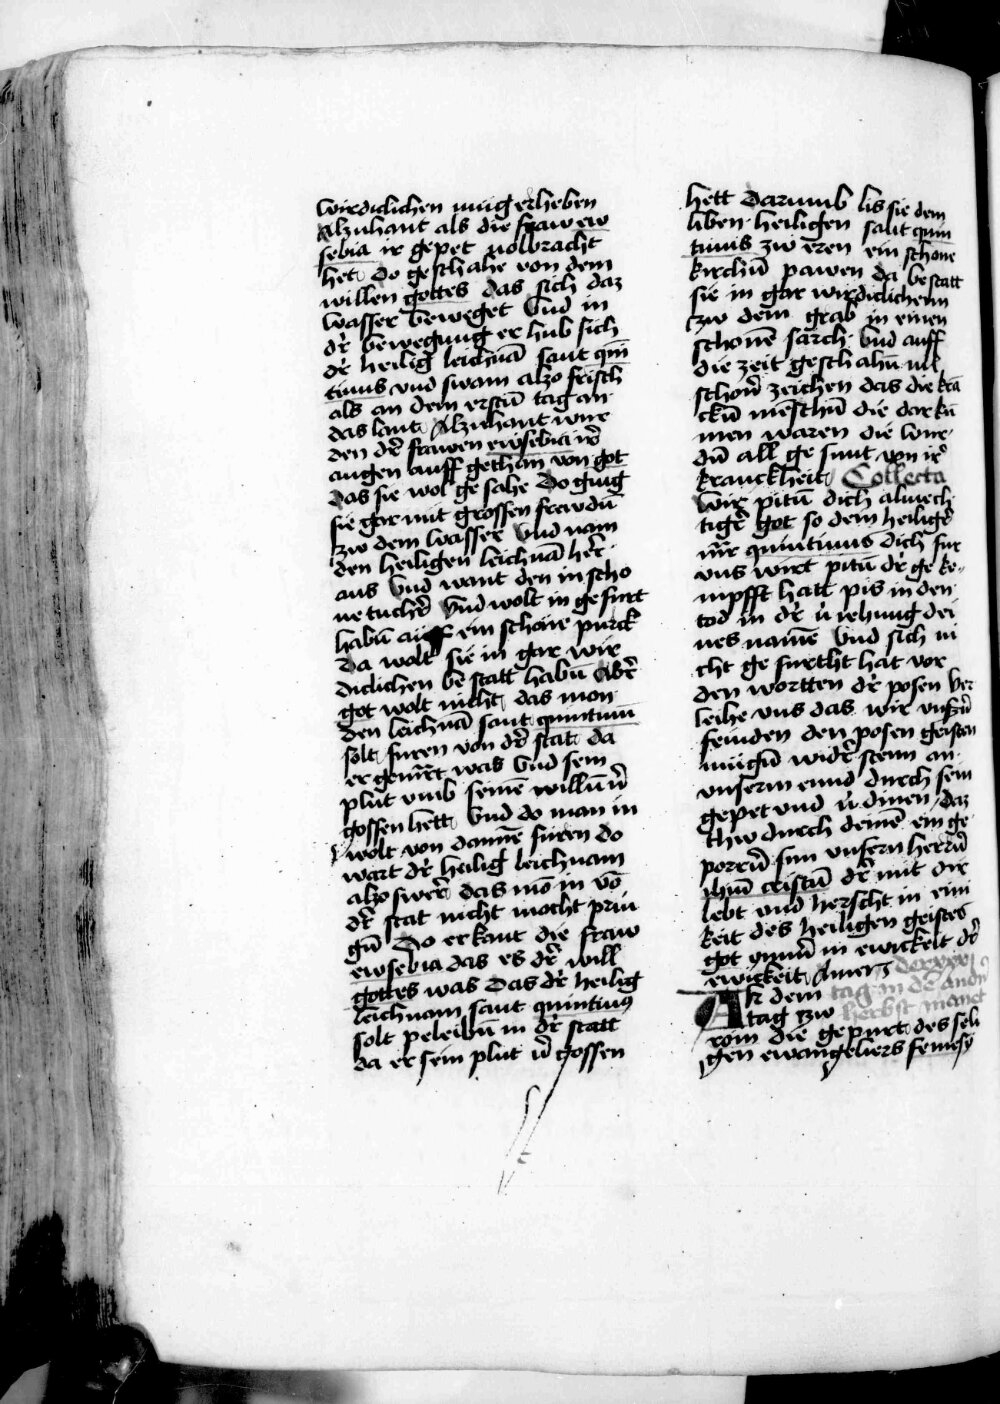 wirdiclichen müg erheben
Alzuhant als die fraw ew
sebia ir gepet volbracht
het do geschahe von dem
willen gottes das sich daz
wasser beweget Vnd in
dr̃ bewegung er hub sich
dr̃ heilig leichnã sant qui
tinus vnd swam alzo frisch
als an dem erstñ tag an
das lant Alzuhant wur
den dr̃ frawen ewsebia ir̃
augen auff gethan von got
das sie wol ge sahe Do ging
sie gar mit grossen frewdñ
zw dem wasser Vnd nam
den heiligen leichnã her̃
aus Vnd want den in scho
ne tucher̃ Vnd wolt in gefurt
habñ auff ein schone purck
Da wolt sie in gar wir
diclichen bestatt habñ Abr̃
got wolt nicht das mon
den leichnã sant quintinũ
solt furen von dr̃ stat da
er gemr̃t was Vnd sein
plut vmb seinẽ willñ v̉
gossen hett Vnd do man in
wolt von dannẽ furen do
wart dr̃ heilig leichnam
alzo swer̃ das mõ in võ
dr̃ stat nicht mocht prin
gñ Do erkant die fraw
ewsebia das es dr̃ will
gottes was Das dr̃ heilig
leichnam sant quintinus
solt peleibñ in dr̃ statt
da er sein plut v̉ gossen
hett Darumb lis sie dem
liben heiligen sant quin
tinus zw eren ein schone
kirchñ pawen da bestatt
sie in gar wirdiclichenn
zw dem grab in einen
schonẽ sarch Vnd auff
die zeit geschahñ vil
schon̉ zeichen das die krã
ckñ mẽschñ die dar kũ
men waren die wur
dñ all ge sunt von ir̃
kranckheit Collecta
Wir pitñ dich almech
tigr̃ got so dein heiligr̃
mr̃ quintinus dich fur
vns wirt pitñ dr̃ ge ke
mpfft hatt pis in den
tod in dr̃ v̉iehung dei
nes namẽ Vnd sich ni
cht ge furcht hat vor
den wortten dr̃ posen Ver
leihe vns das wir vnszñ
feinden den posen geisten
mügñ widr̃ stenn an
vnserm end durch sein
gepet vnd v̉dinen daz
thw durch deinẽ ein ge
porrñ sun vnsern herrñ
ihm̃ cristũ dr̃ mit dir
lebt vnd herscht in ein
keit des heiligen geistes
got ymm̃ in ewickeit dr̃
ewigkeit Amen
An dem tag in dẽ andn̉
tag zw herbst manet
rom die gepurt des seli
gen ewangeliers